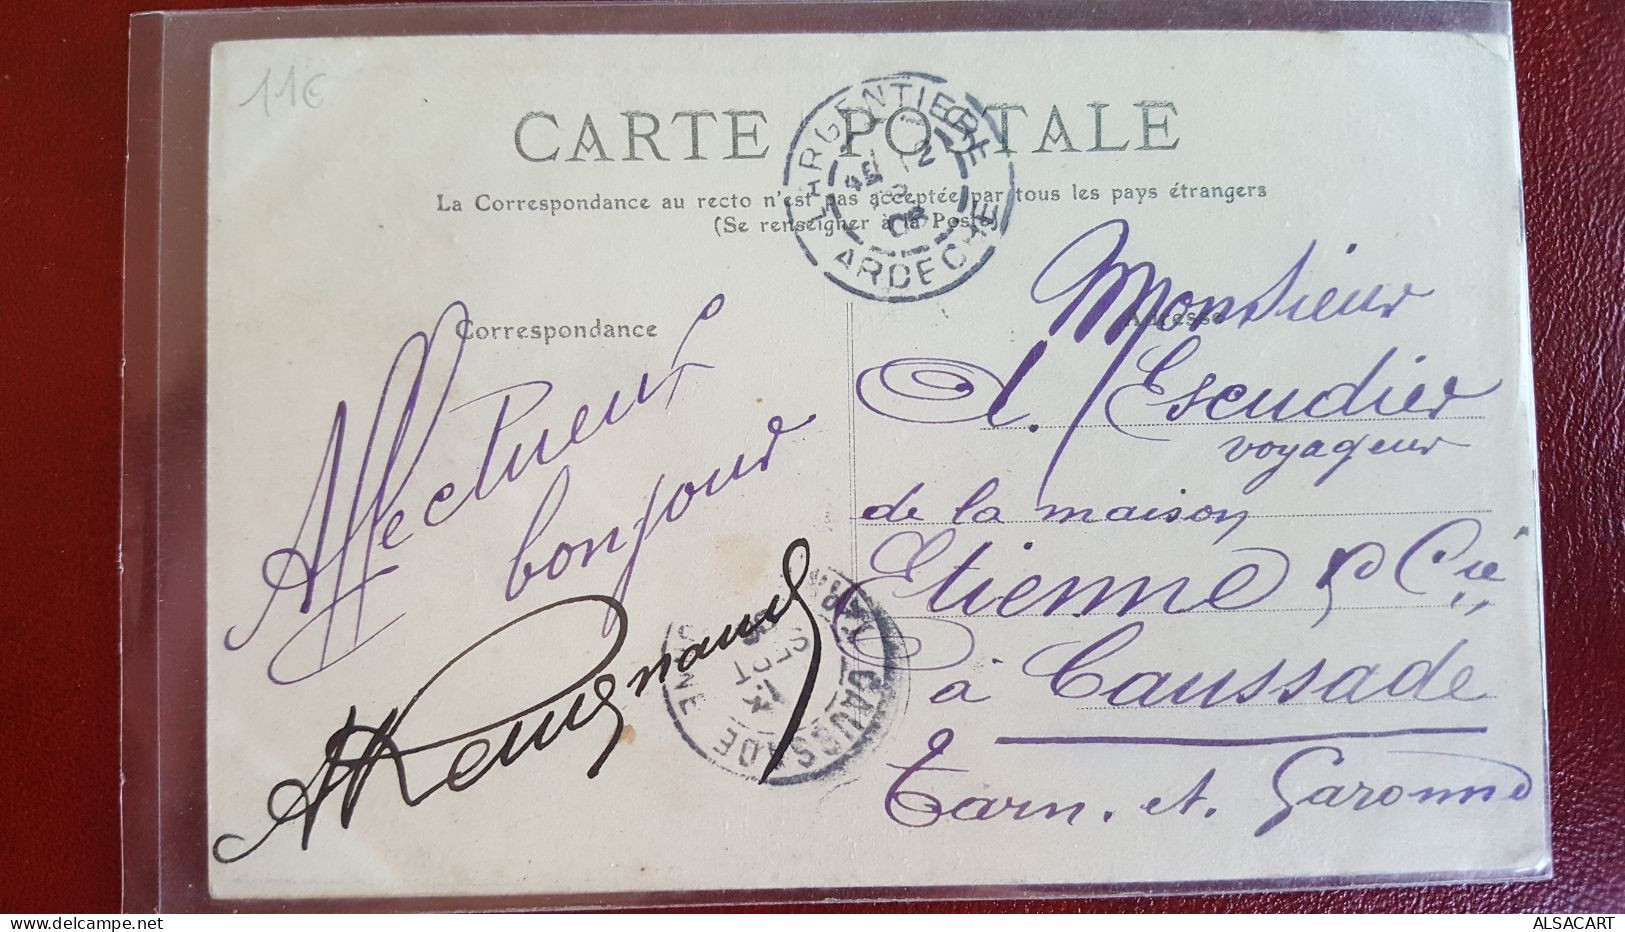 11€
CARTE POSTALE
La Correspondance au recto n'est pas acceptée par tous les pays étrangers
(Se renseigner à la Poste)
LARGENTIERE
ARDECHE
Correspondance
Affectueux
bonjour
CAUSSADE
Adresse
Monsieur
A. Escudier
voyageur
de la maison
Etienne & Cie
à Caussade
Tarn. et. Garonne
ALSACART